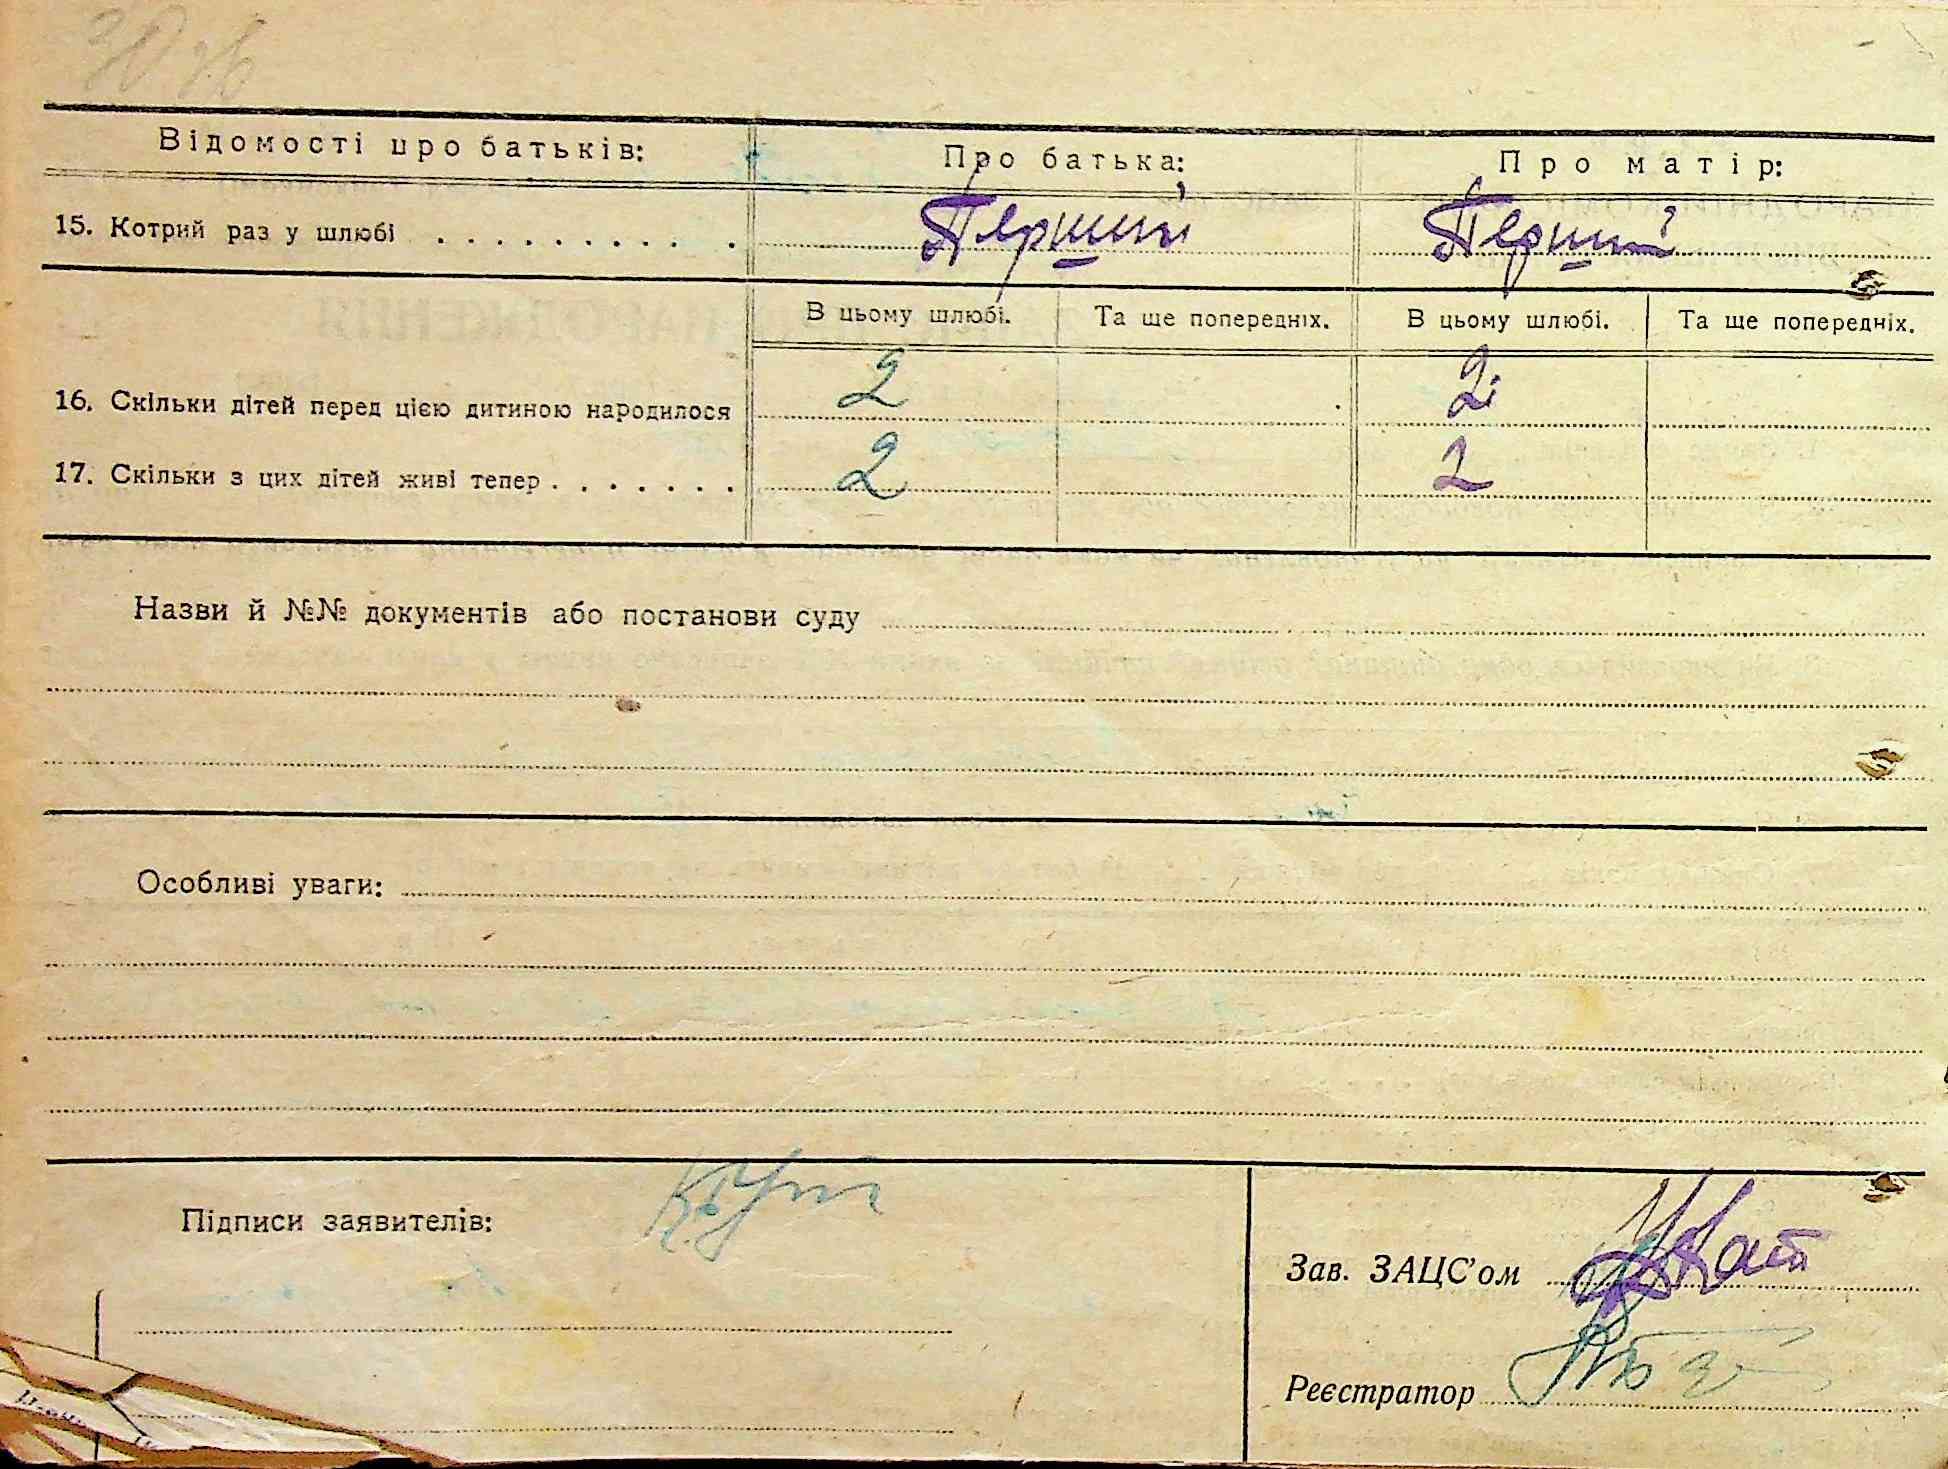 30 зв
Відомості про батьків: Про батька: Про матір:
15. Котрий раз у шлюбі . . . . . . . . . . Перший Перший
В цьому шлюбі. Та ще попередніх. В цьому шлюбі. Та ще попередніх.
16. Скільки дітей перед цією дитиною народилося 2 2
17. Скільки з цих дітей живі тепер . . . . . . . 2 2
Назви й №№ документів або постанови суду
Особливі уваги:
Підписи заявителів:
Зав. ЗАЦС’ом
Реєстратор